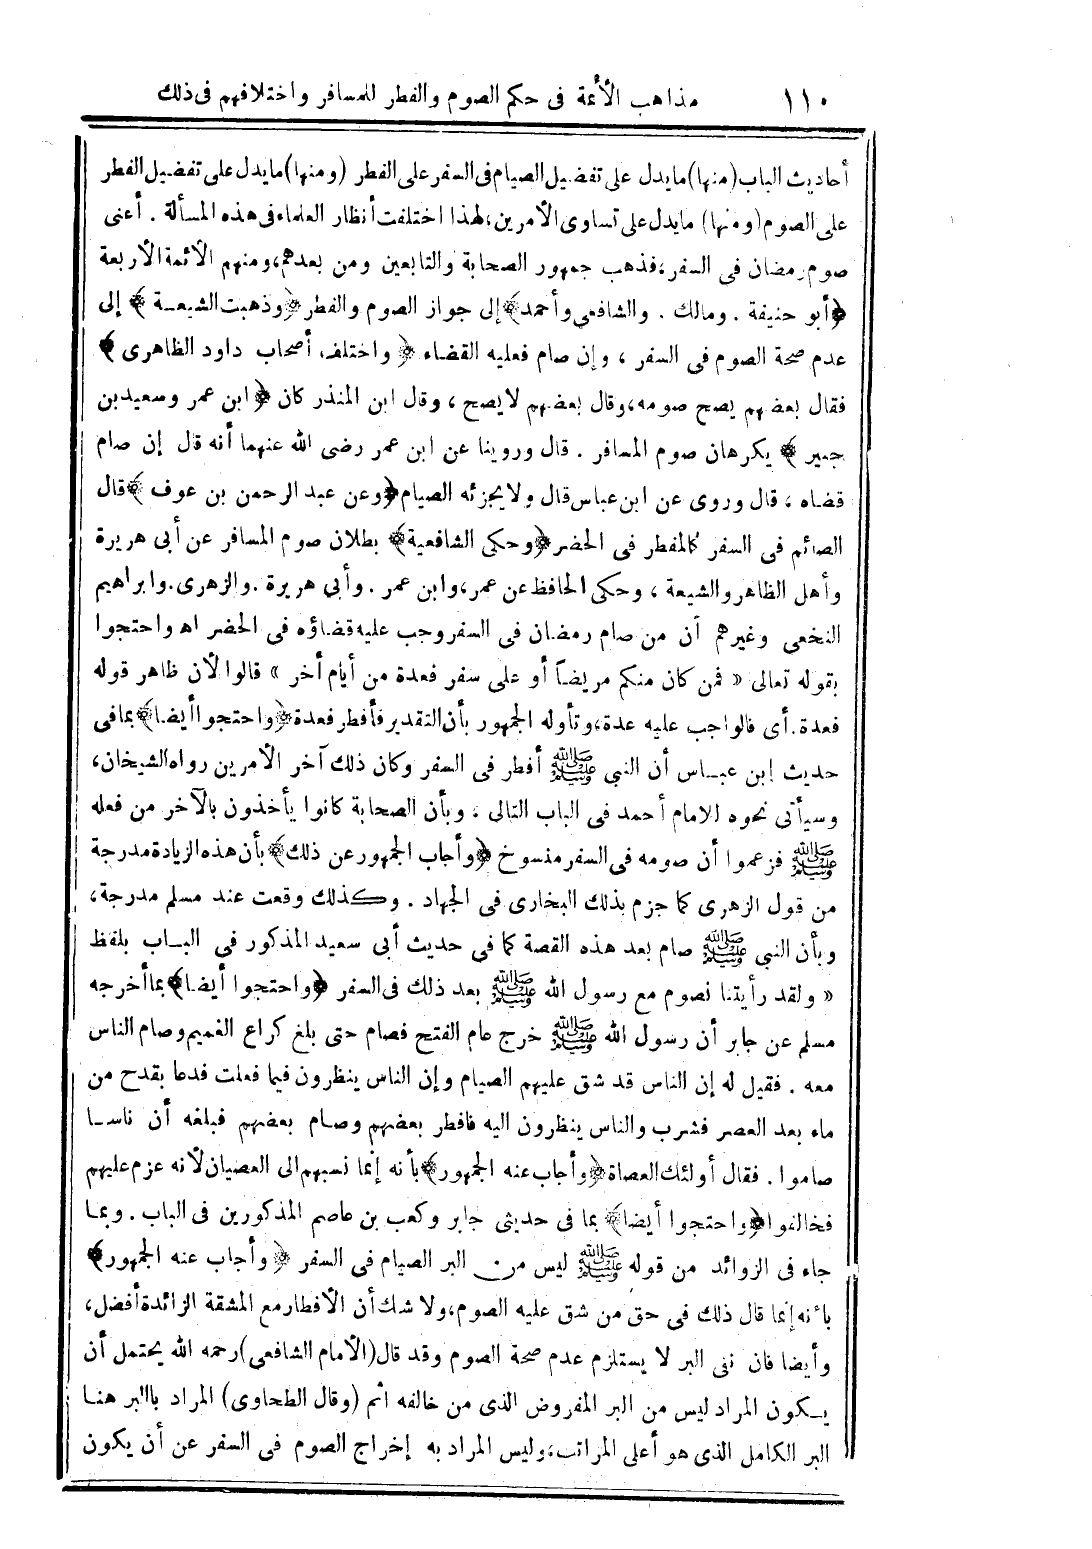 ١١٠ مذاهب الأئمة فى حكم الصوم والفطر للمسافر واختلافهم فى ذلك
أحاديث الباب (منها) مايدل على تفضيل الصيام فى السفر على الفطر (ومنها) مايدل على تفضيل الفطر
على الصوم (ومنها) مايدل على تساوى الأمرين، لهذا اختلفت أنظار العلماء فى هذه المسألة . أعنى
صوم رمضان فى السفر، فذهب جمهور الصحابة والتابعين ومن بعدهم، ومنهم الأئمة الأربعة
﴿أبو حنيفة . ومالك . والشافعى وأحمد﴾ إلى جواز الصوم والفطر ﴿وذهبت الشيعة﴾ إلى
عدم صحة الصوم فى السفر ، وإن صام فعليه القضاء ﴿واختلف أصحاب داود الظاهرى﴾
فقال بعضهم يصح صومه، وقال بعضهم لا يصح ، وقال ابن المنذر كان ﴿ابن عمر وسعيد بن
جبير﴾ يكرهان صوم المسافر . قال وروينا عن ابن عمر رضى الله عنهما أنه قال إن صام
قضاه ، قال وروى عن ابن عباس قال ولا يجزئه الصيام ﴿وعن عبد الرحمن بن عوف﴾ قال
الصائم فى السفر كالمفطر فى الحضر ﴿وحكى الشافعية﴾ بطلان صوم المسافر عن أبى هريرة
وأهل الظاهر والشيعة ، وحكى الحافظ عن عمر، وابن عمر . وأبي هريرة . والزهرى. وابراهيم
النخعى وغيرهم أن من صام رمضان فى السفر وجب عليه قضاؤه فى الحضر اه واحتجوا
بقوله تعالى « فمن كان منكم مريضاً أو على سفر فعدة من أيام أخر » قالوا لأن ظاهر قوله
فعدة. أى فالواجب عليه عدة، وتأوله الجمهور بأن التقدير فأفطر فعدة ﴿واحتجوا أيضا﴾ بما فى
حديث إبن عباس أن النبي ﷺ أفطر فى السفر وكان ذلك آخر الأمرين رواه الشيخان،
وسيأتى نحوه للامام أحمد فى الباب التالى ، وبأن الصحابة كانوا يأخذون بالآخر من فعله
ﷺ فزعموا أن صومه فى السفر منسوخ ﴿وأجاب الجمهور عن ذلك﴾ بأن هذه الزيادة مدرجة
من قول الزهرى كما جزم بذلك البخارى فى الجهاد . وكذلك وقعت عند مسلم مدرجة،
وبأن النبي ﷺ صام بعد هذه القصة كما فى حديث أبى سعيد المذكور فى الباب بلفظ
« ولقد رأيتنا نصوم مع رسول الله ﷺ بعد ذلك فى السفر ﴿واحتجوا أيضا﴾ بما أخرجه
مسلم عن جابر أن رسول الله ﷺ خرج عام الفتح فصام حتى بلغ كراع الغميم وصام الناس
معه . فقيل له إن الناس قد شق عليهم الصيام وإن الناس ينظرون فيما فعلت فدعا بقدح من
ماء بعد العصر فشرب والناس ينظرون اليه فافطر بعضهم وصام بعضهم فبلغه أن ناسا
صاموا . فقال أولئك العصاة ﴿وأجاب عنه الجمهور﴾ بأنه إنما نسبهم الى العصيان لأنه عزم عليهم
فخالفوا ﴿واحتجوا أيضا﴾ بما فى حديثى جابر وكعب بن عاصم المذكورين فى الباب . وبما
جاء فى الزوائد من قوله ﷺ ليس من البر الصيام فى السفر ﴿وأجاب عنه الجمهور﴾
بأنه إنما قال ذلك فى حق من شق عليه الصوم، ولا شك أن الأفطار مع المشقة الزائدة أفضل،
وأيضا فان نفى البر لا يستلزم عدم صحة الصوم وقد قال (الأمام الشافعى) رحمه الله يحتمل أن
يكون المراد ليس من البر المفروض الذى من خالفه أثم (وقال الطحاوى) المراد باالبر هنا
البر الكامل الذى هو أعلى المراتب، وليس المراد به إخراج الصوم فى السفر عن أن يكون